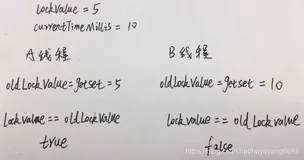 lockValue = 5
currentTimeMillis = 10
A 线程
oldLockValue=getset = 5
lockvalue == oldLockValue
true
B 线程
oldLockValue=getset = 10
lockvalue == oldLockValue
false